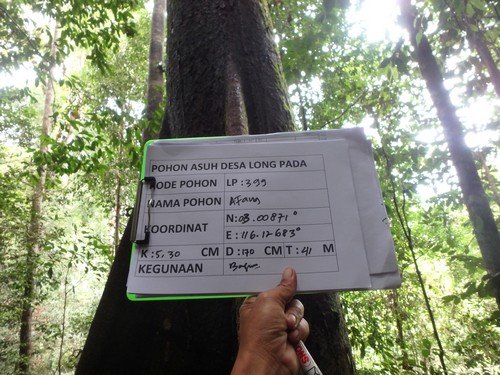 POHON ASUH DESA LONG PADA
KODE POHON LP : 399
NAMA POHON Afang
KOORDINAT N: 03.00871°
E : 116.12683°
K : 5,30 CM D : 170 CM T : 41 M
KEGUNAAN